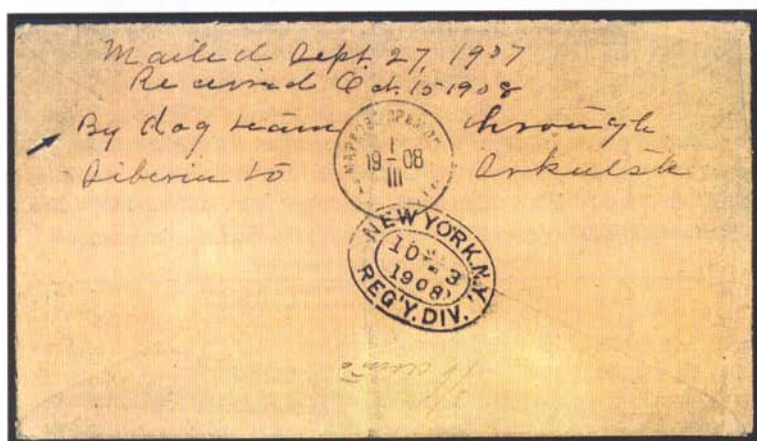 Mailed Sept. 27, 1907
Received Oct. 15 1908
By dog team through
Siberia to Arkutsk
I
19 08
III
NEW YORK, N.Y.
10 3
1908
REG'Y. DIV.